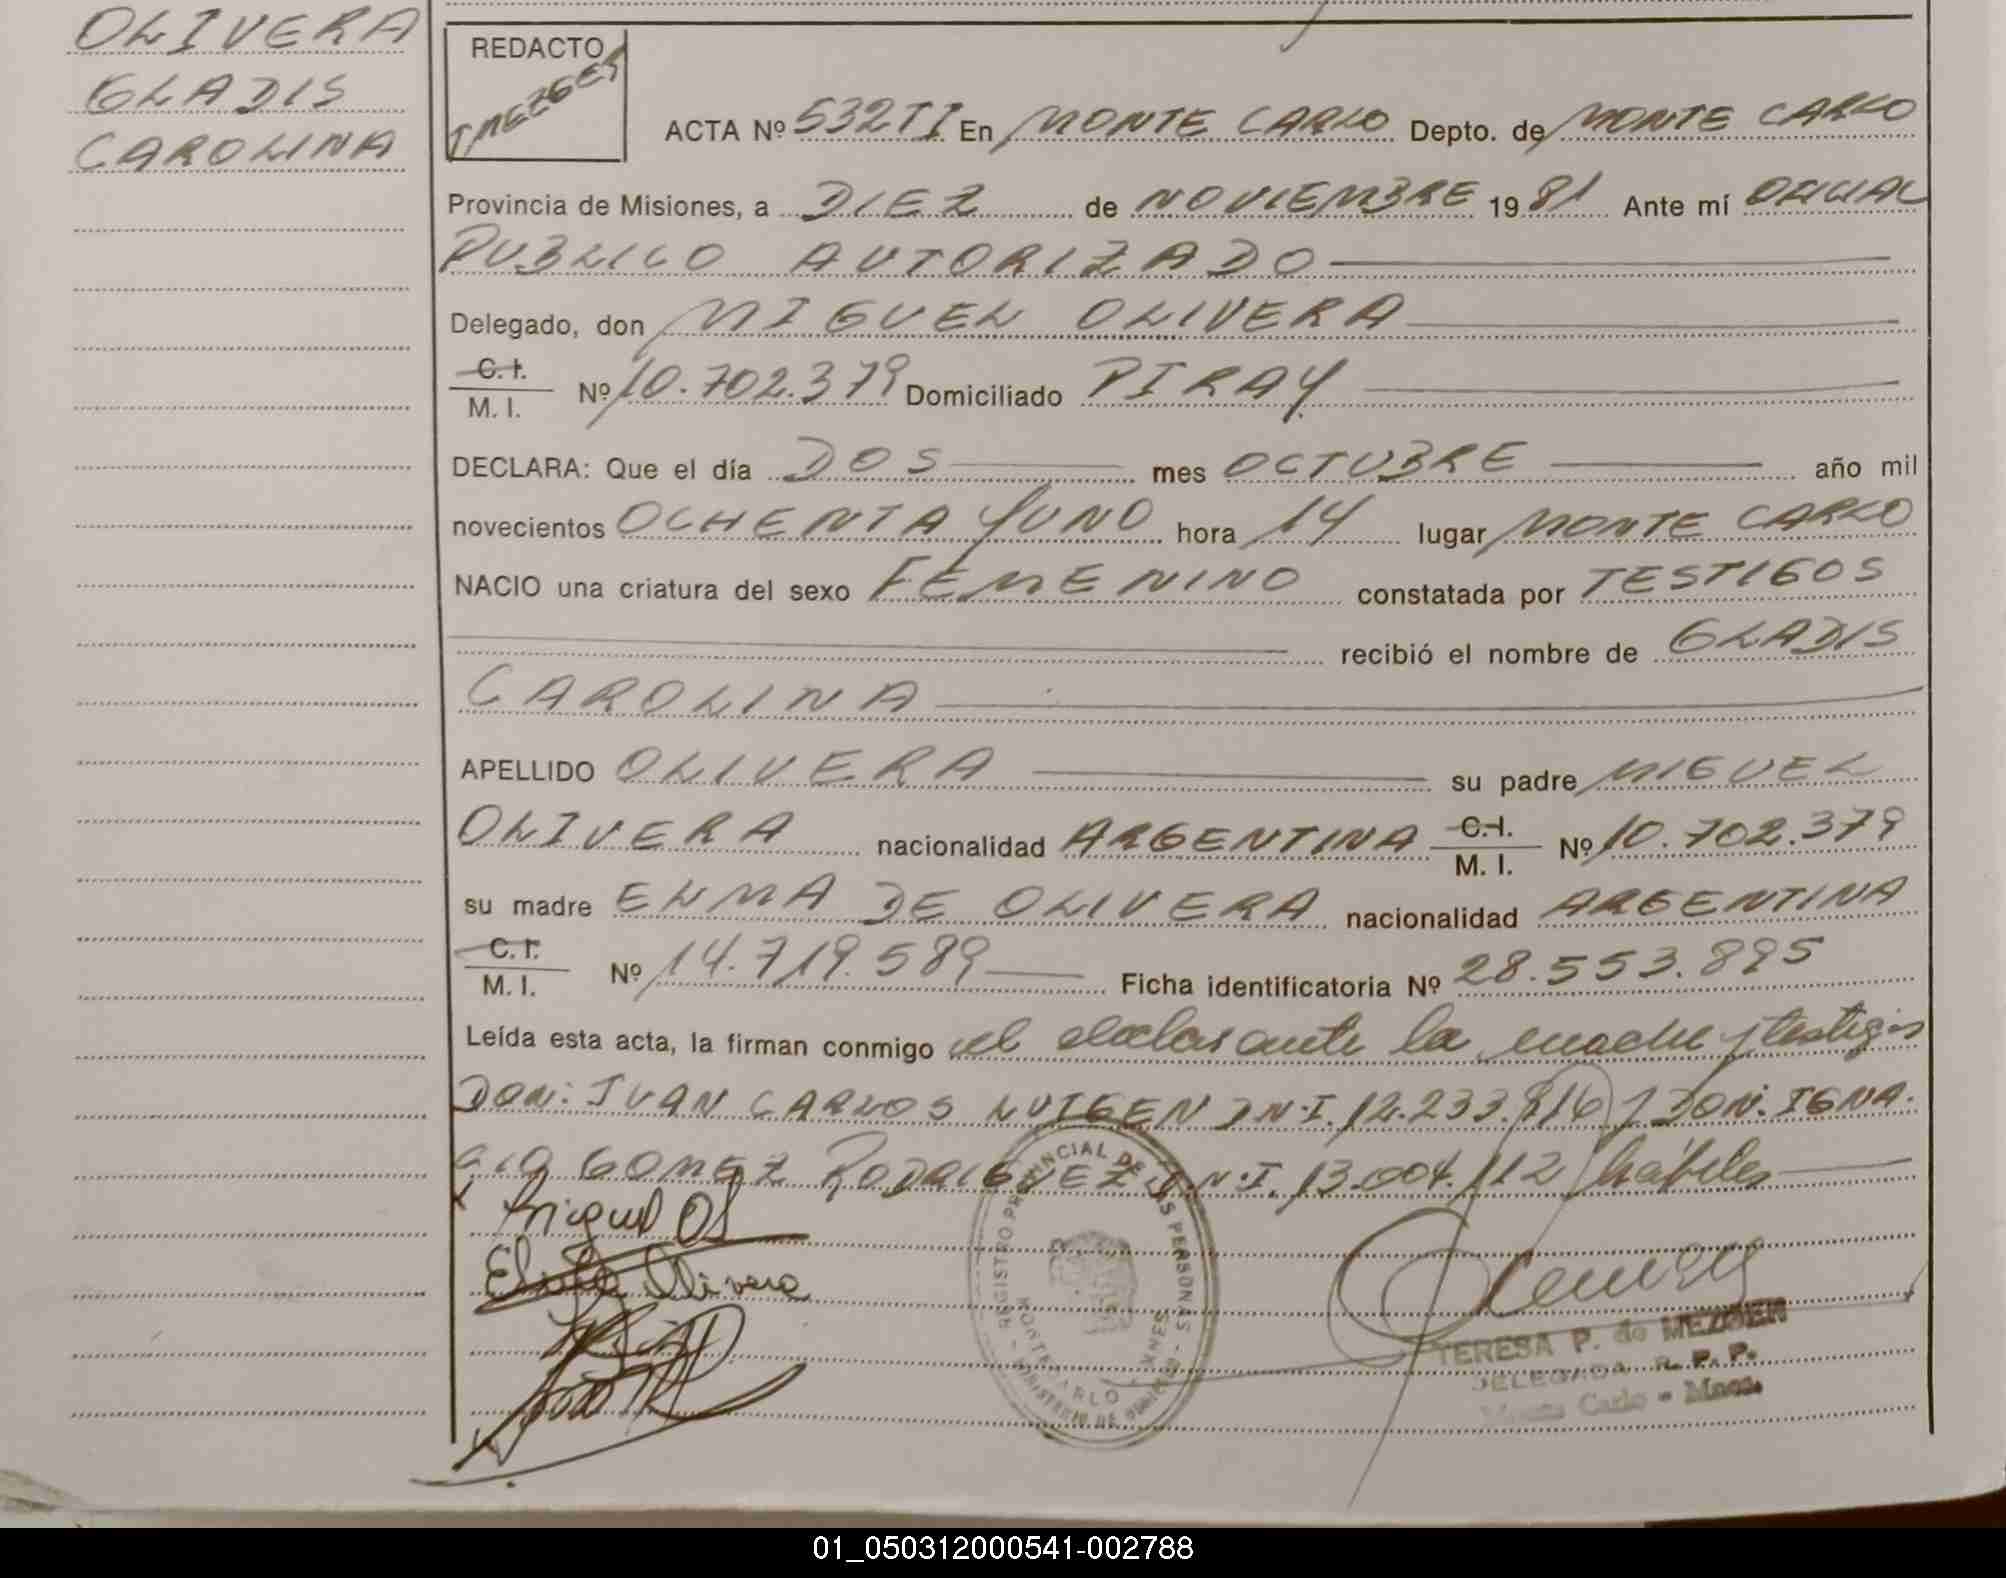 OLIVERA
GLADIS
CAROLINA
REDACTO
TMEZGER
ACTA Nº 532TI En MONTE CARLO Depto. de MONTE CARLO
Provincia de Misiones, a DIEZ de NOVIEMBRE 1981 Ante mí OFICIAL
PUBLICO AUTORIZADO
Delegado, don MIGUEL OLIVERA
C. I.
M. I. Nº 10.702.379 Domiciliado PIRAY
DECLARA: Que el día DOS mes OCTUBRE año mil
novecientos OCHENTA Y UNO hora 14 lugar MONTE CARLO
NACIO una criatura del sexo FEMENINO constatada por TESTIGOS
recibió el nombre de GLADIS
CAROLINA
APELLIDO OLIVERA su padre MIGUEL
OLIVERA nacionalidad ARGENTINA C.I. M. I. Nº 10.702.379
su madre ELMA DE OLIVERA nacionalidad ARGENTINA
C. I.
M. I. Nº 14.719.589 Ficha identificatoria Nº 28.553.895
Leída esta acta, la firman conmigo el declarante la madre y testigos
DON: JUAN CARLOS LUTGEN D.N.I. 12.233.816 y DON: IGNA.
CIO GOMEZ RODRIGUEZ D.N.I. 13.004.112 hábiles
Miguel Ol
Olivera
REGISTRO PROVINCIAL DE LAS PERSONAS
MONTECARLO
MNES
MINISTERIO DE
TERESA P. de MEZGER
DELEGADA R. P. P.
Monte Carlo - Mnes.
01_050312000541-002788